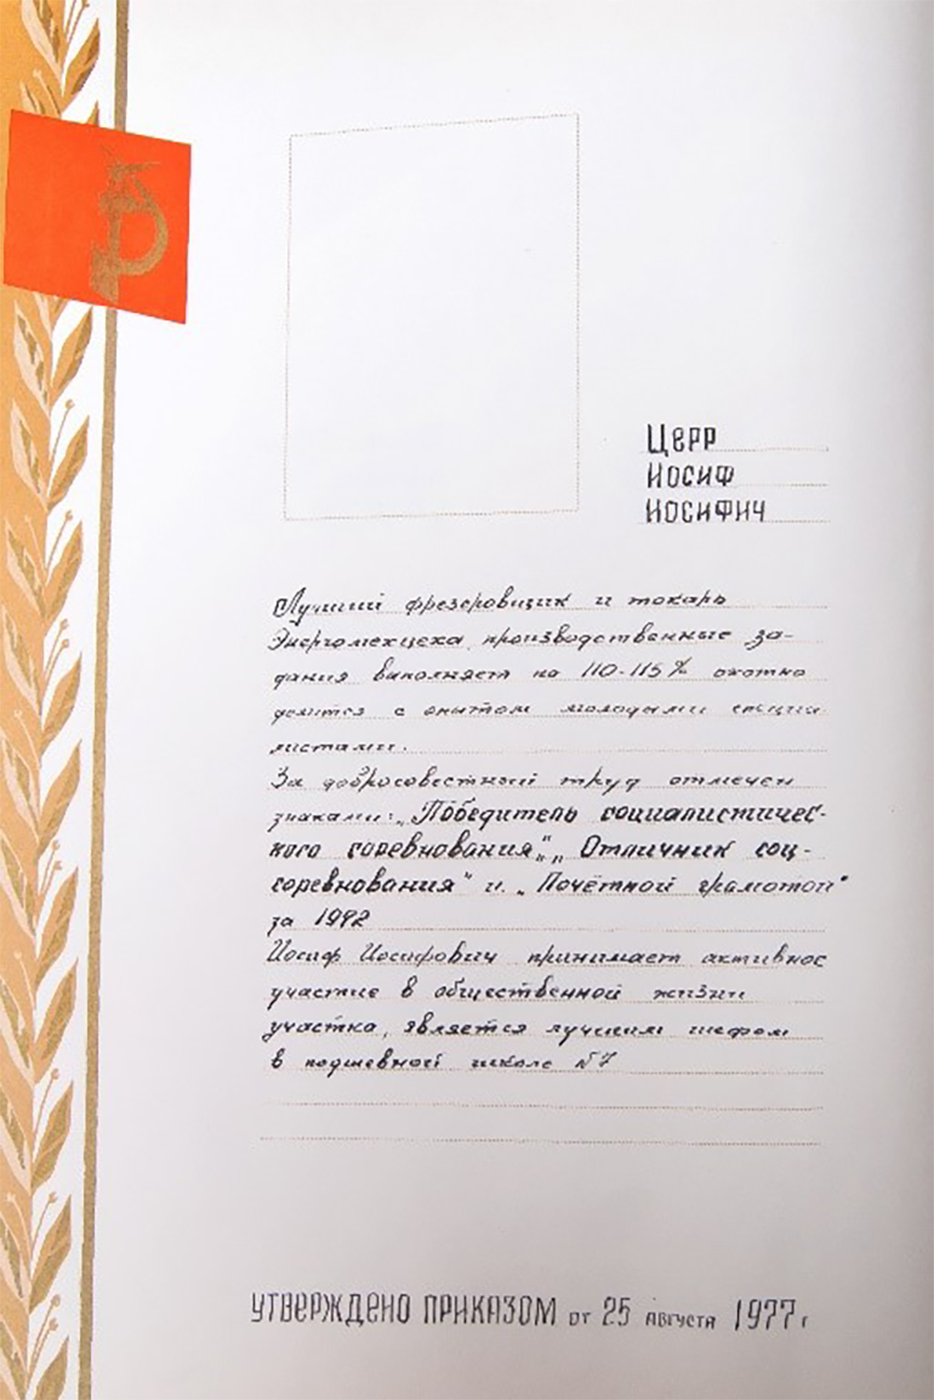 Церр
Иосиф
Иосифич
Лучший фрезеровщик и токарь
Энергомехцеха, производственные за-
дания выполняет на 110-115% охотно
делится с опытом молодыми специа
листами.
За добросовестный труд отмечен
знаками: „Победитель социалистичес-
кого соревнования", „Отличник соц-
соревнования" и „Почётной грамотой"
за 1992
Иосиф Иосифович принимает активное
участие в общественной жизни
участка, является лучшим шефом
в подшевной школе №7
УТВЕРЖДЕНО ПРИКАЗОМ от 25 августа 1977 г